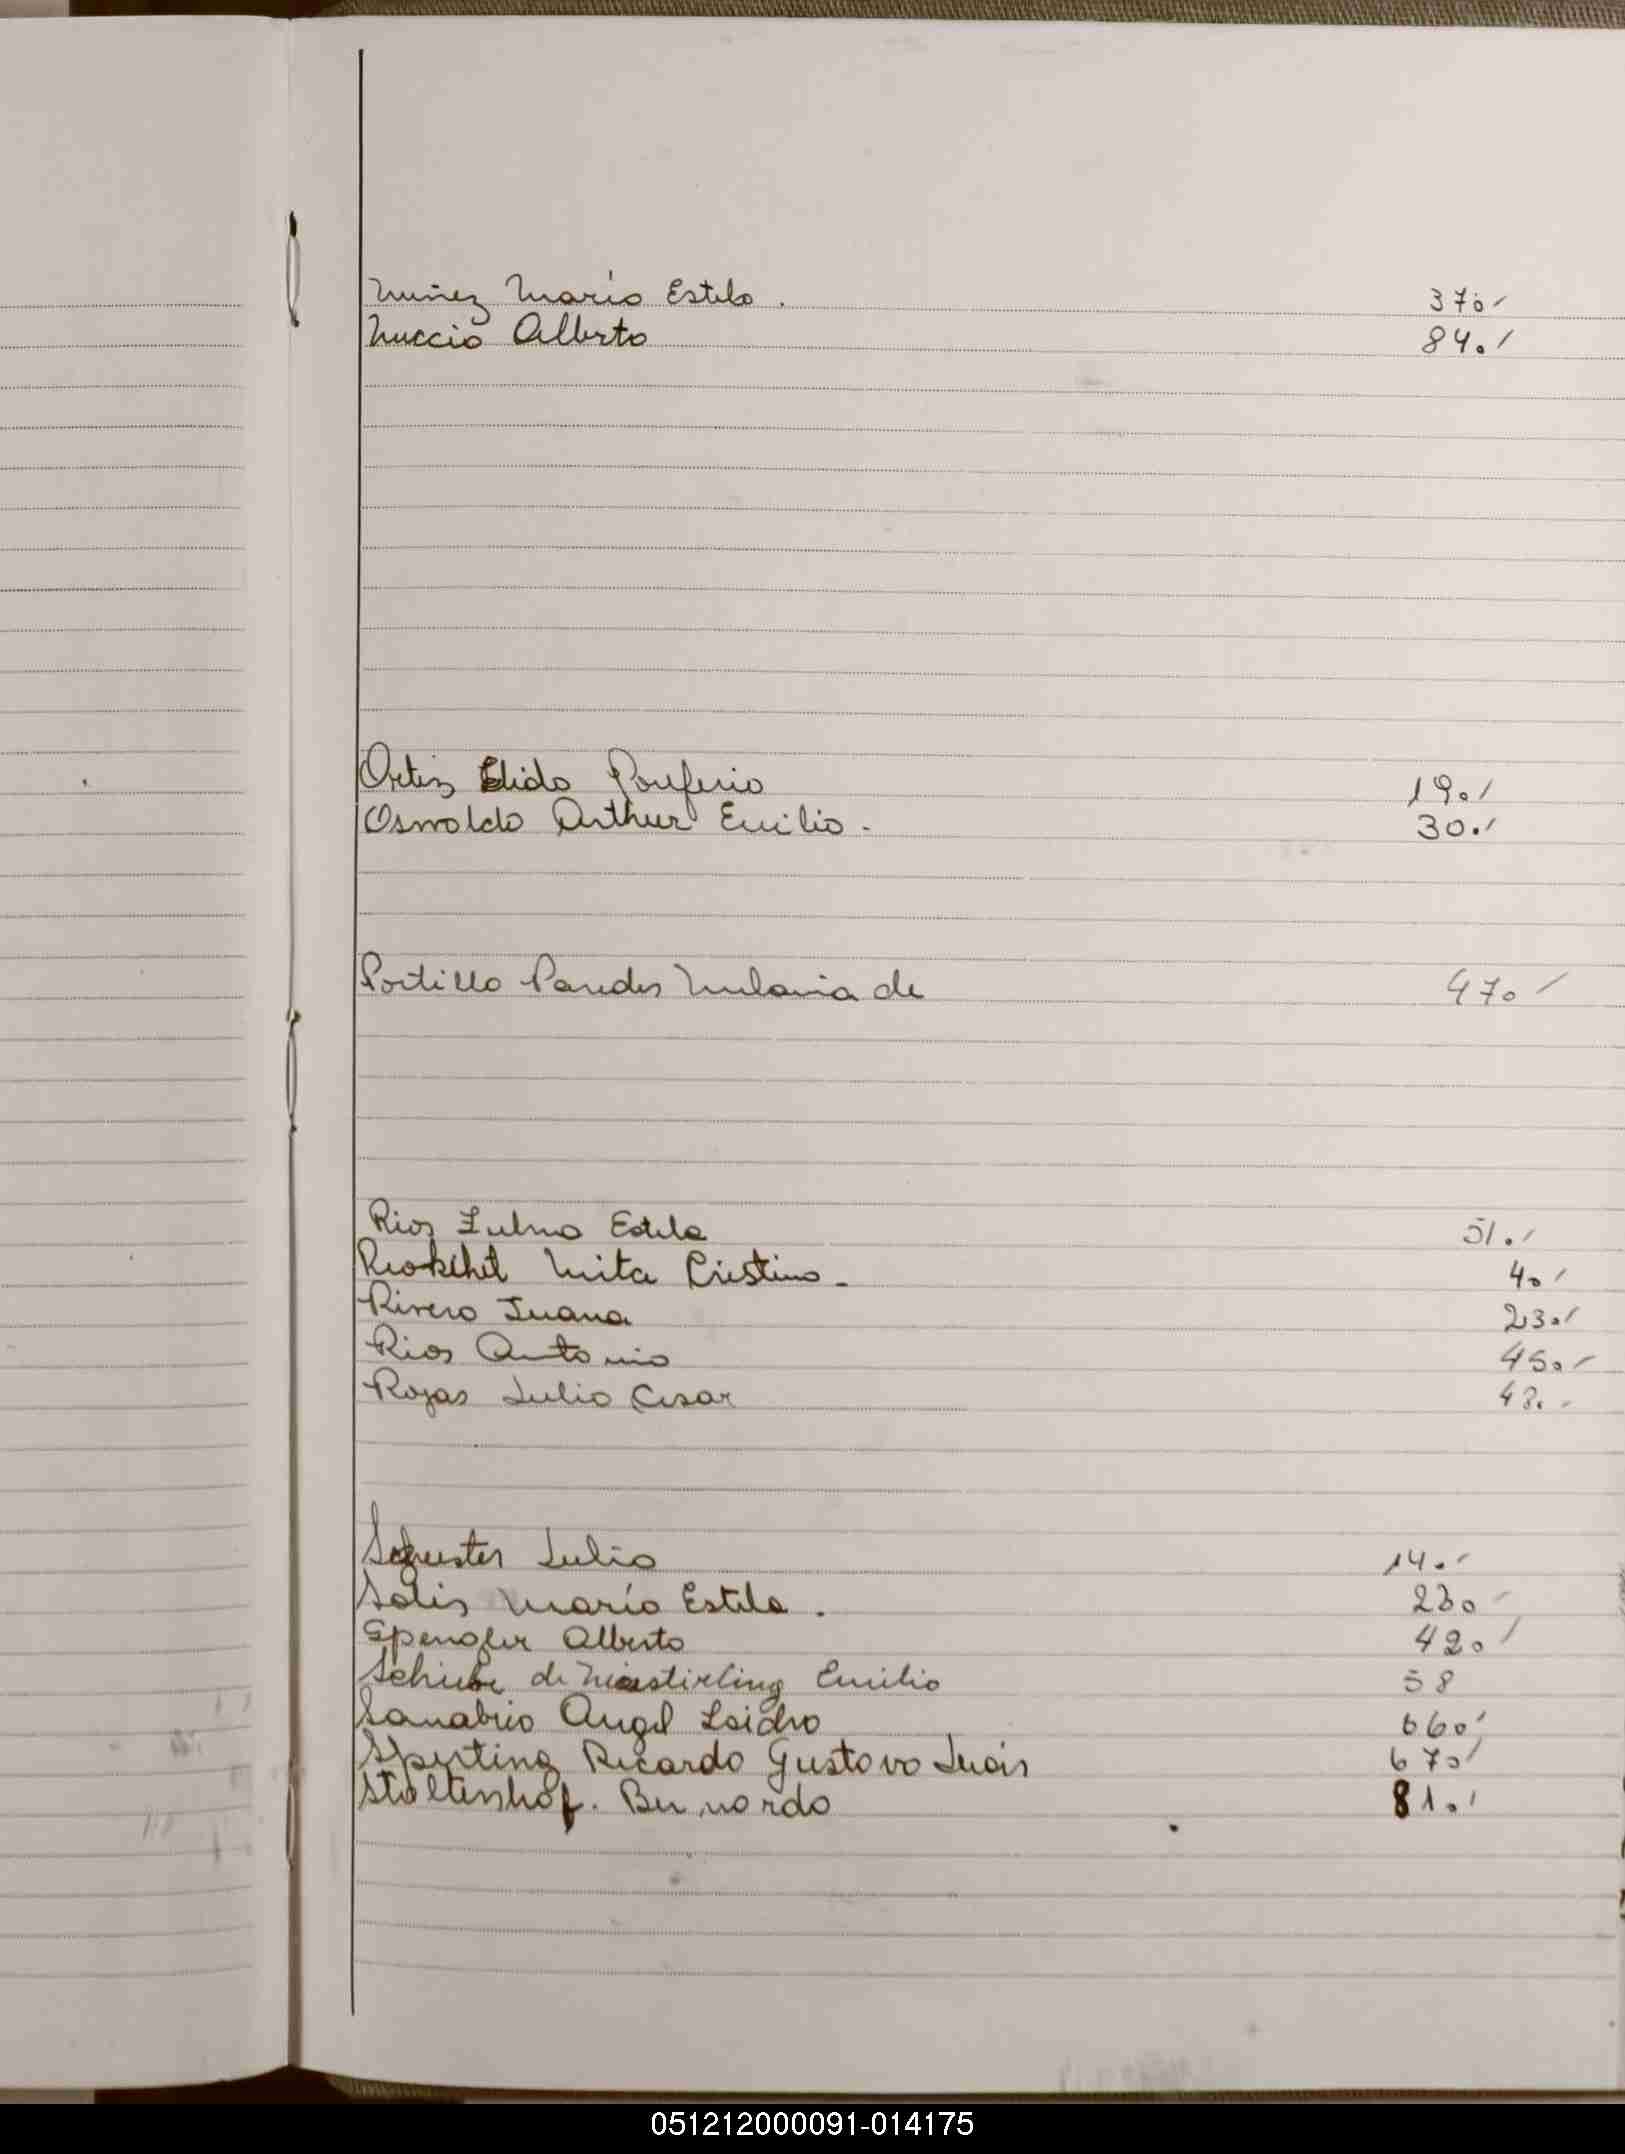 Nuñez María Estela. 370/
Nuccio Alberto 84./
Ortiz Elido Porferio 190/
Osvaldo Arthur Emilio. 30./
Portillo Paredes de 470/
Rios Zulma Estela 51./
Mita Cristina. 40/
Rivero Juana 230/
Rios Antonio 450/
Rojas Julio Cesar 48.-
Schuster Julio 14./
Solis María Estela. 230/
Spengler Alberto 420/
de Emilio 58
Sanabrio Angel Isidro 660/
Sperting Ricardo Gustavo Luis 670/
Stoltenhof. Bernardo 81./
051212000091-014175